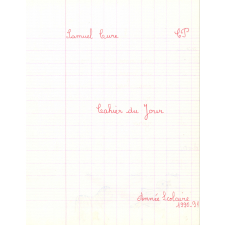 Samuel Cure CP
Cahier du Jour
Année Scolaire